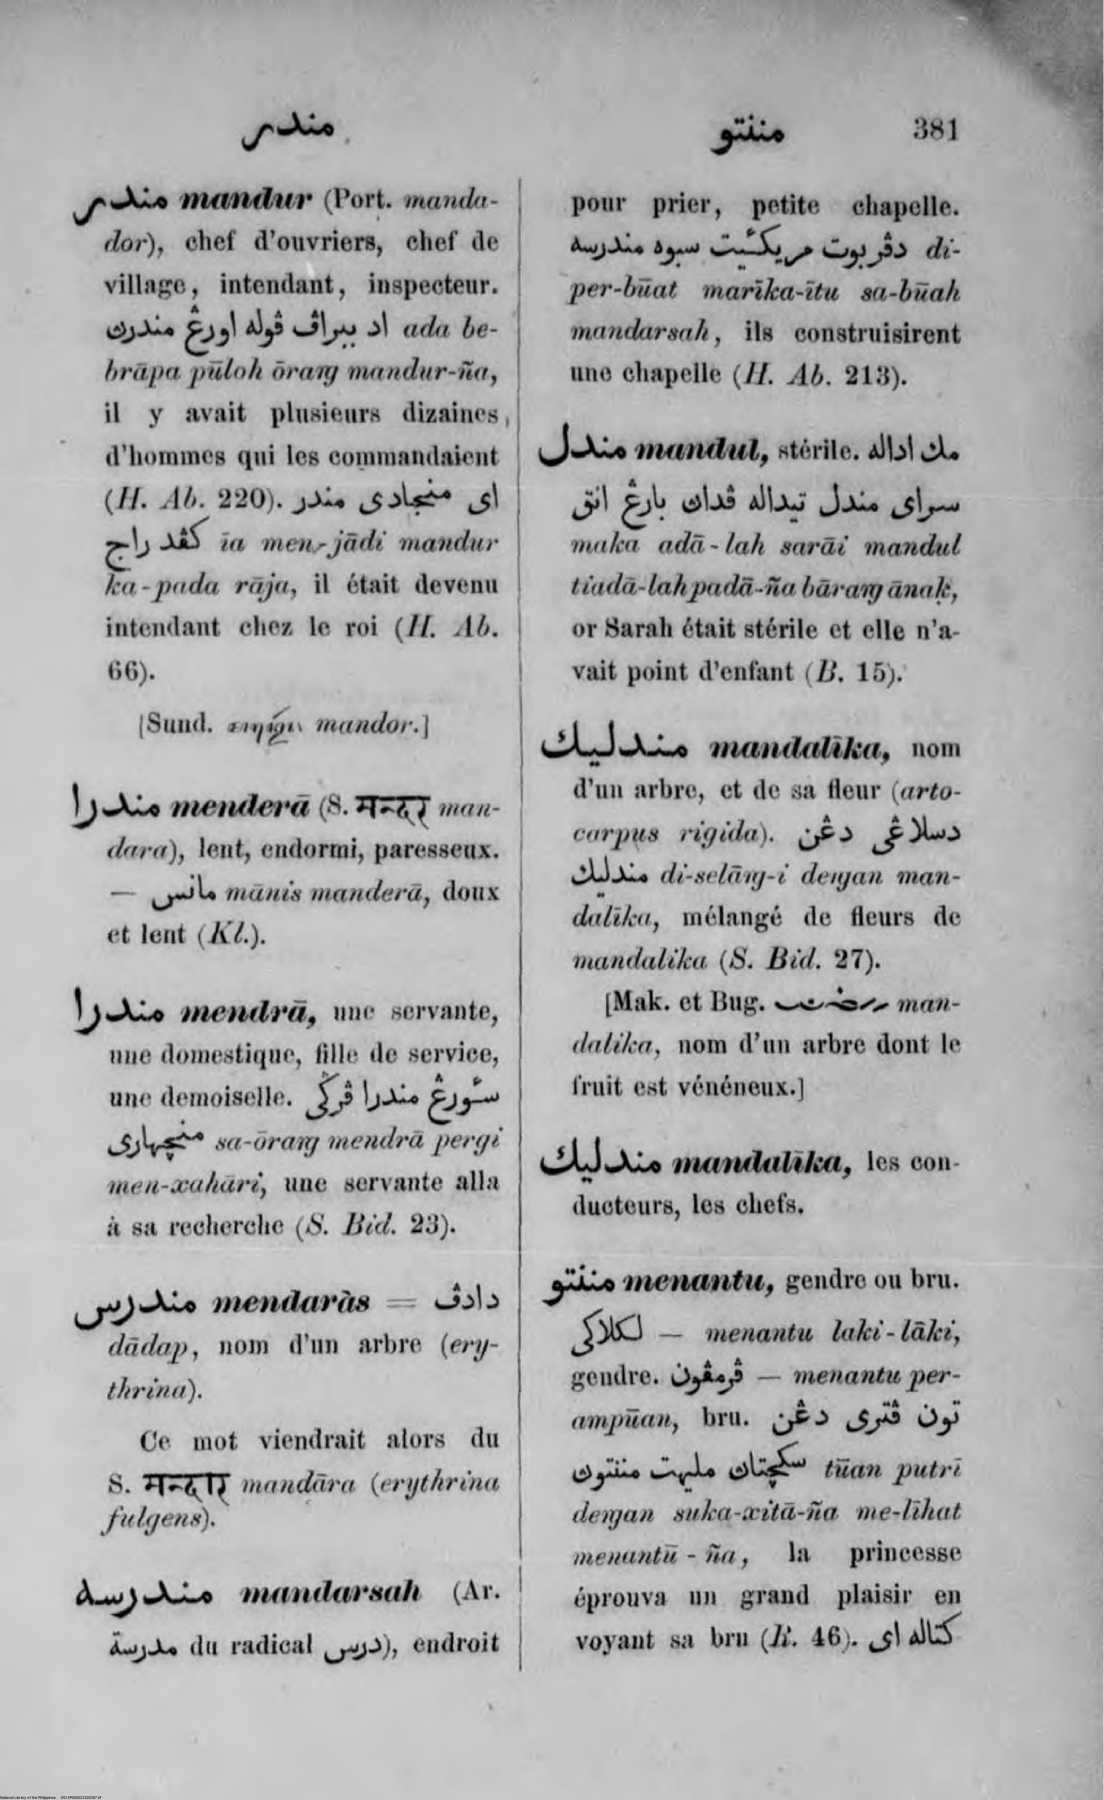 مندر
منتتو 381
مندر mandur (Port. manda-
dor), chef d'ouvriers, chef de
village, intendant, inspecteur.
اد ببراڤ ڤوله اورڠ مندرن ada be-
brāpa pūloh ōraŋ mandur-ña,
il y avait plusieurs dizaines
d'hommes qui les commandaient
(H. Ab. 220). اي منجادي مندر
كڤد راج īa men-jādi mandur
ka-pada rāja, il était devenu
intendant chez le roi (H. Ab.
66).
[Sund. mandor.]
مندرا menderā (S. मन्दर man-
dara), lent, endormi, paresseux.
— مانس mānis manderā, doux
et lent (Kl.).
مندرا mendrā, une servante,
une domestique, fille de service,
une demoiselle. سٔورڠ مندرا ڤرڬي
منچهاري sa-ōraŋ mendrā pergi
men-xahāri, une servante alla
à sa recherche (S. Bid. 23).
مندرس mendaràs = دادڤ
dādap, nom d'un arbre (ery-
thrina).
Ce mot viendrait alors du
S. मन्दार mandāra (erythrina
fulgens).
مندرسه mandarsah (Ar.
مدرسة du radical درس), endroit
pour prier, petite chapelle.
دڤربوت مريكٔيت سبوه مندرسه di-
per-būat marīka-ītu sa-būah
mandarsah, ils construisirent
une chapelle (H. Ab. 213).
مندل mandul, stérile. مك اداله
سراي مندل تيداله ڤدان بارڠ انق
maka adā-lah sarāi mandul
tiadā-lah padā-ña bāraŋ ānaḳ,
or Sarah était stérile et elle n'a-
vait point d'enfant (B. 15).
مندليك mandalīka, nom
d'un arbre, et de sa fleur (arto-
carpus rigida). دسلاڠي دڠن
مندليك di-selāŋ-i deŋan man-
dalīka, mélangé de fleurs de
mandalika (S. Bid. 27).
[Mak. et Bug. man-
dalika, nom d'un arbre dont le
fruit est vénéneux.]
مندليك mandalīka, les con-
ducteurs, les chefs.
مننتو menantu, gendre ou bru.
لكلاكي — menantu laki-lāki,
gendre. ڤرمڤون — menantu per-
ampūan, bru. تون ڤتري دڠن
سكچتان مليهت مننتون tūan putrī
deŋan suka-xitā-ña me-līhat
menantū-ña, la princesse
éprouva un grand plaisir en
voyant sa bru (R. 46). كتاله اي